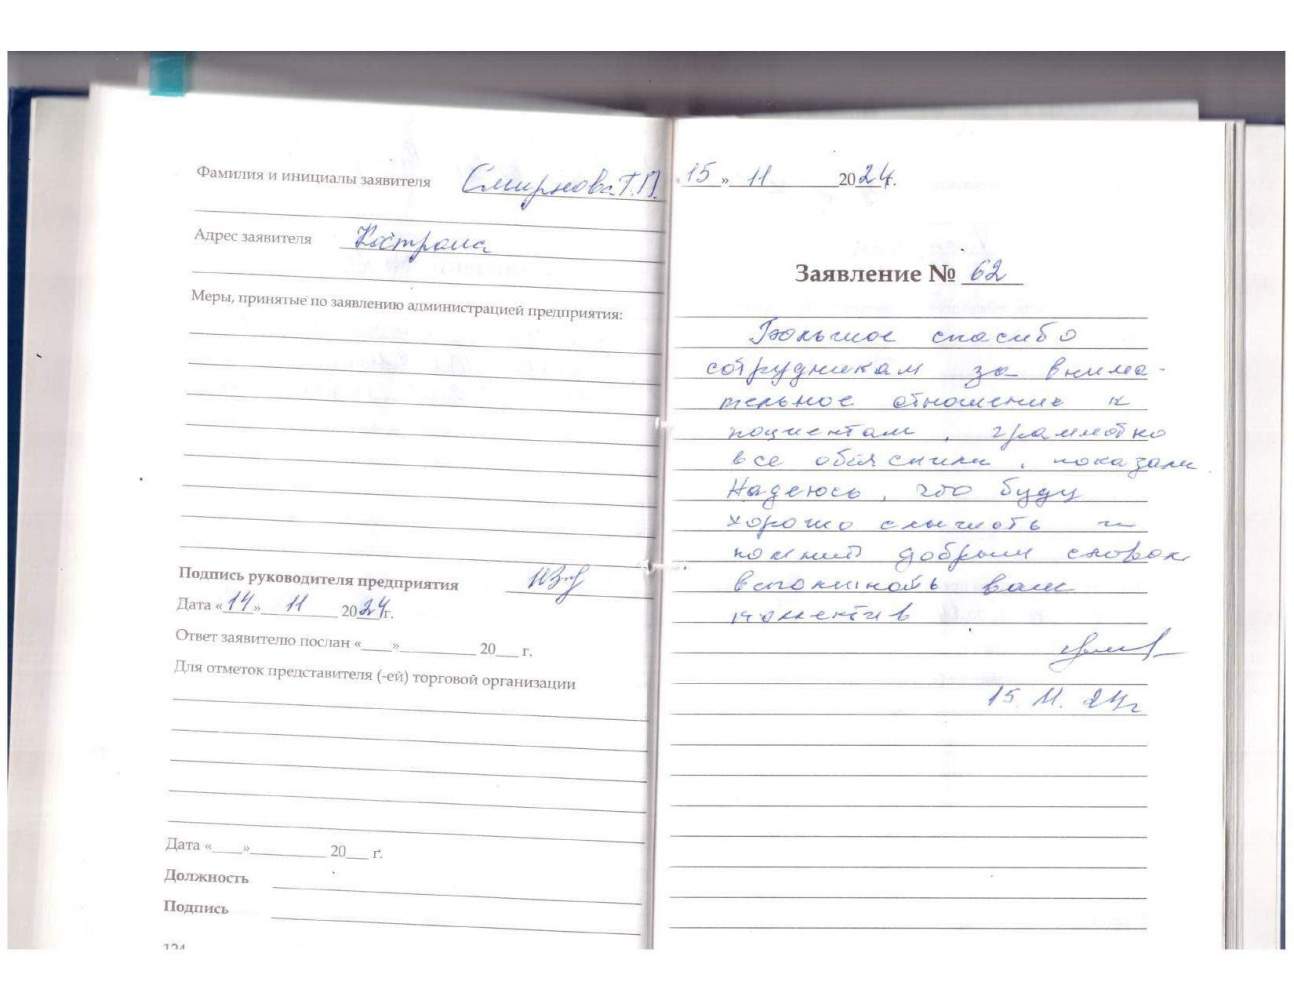 Фамилия и инициалы заявителя Смирнова Т.П.
Адрес заявителя Кострома
Меры, принятые по заявлению администрацией предприятия:
Подпись руководителя предприятия
Дата «14» 11 2024г.
Ответ заявителю послан «____»__________ 20___ г.
Для отметок представителя (-ей) торговой организации
Дата «____»__________ 20___ г.
Должность
Подпись
124
«15» 11 2024г.
Заявление № 62
Большое спасибо
сотрудникам за внима-
тельное отношение к
пациентам, грамотно
все объяснили, показали.
Надеюсь, что буду
хорошо слышать и
помнить добрым словом
ваш
коллектив
15.11.24г